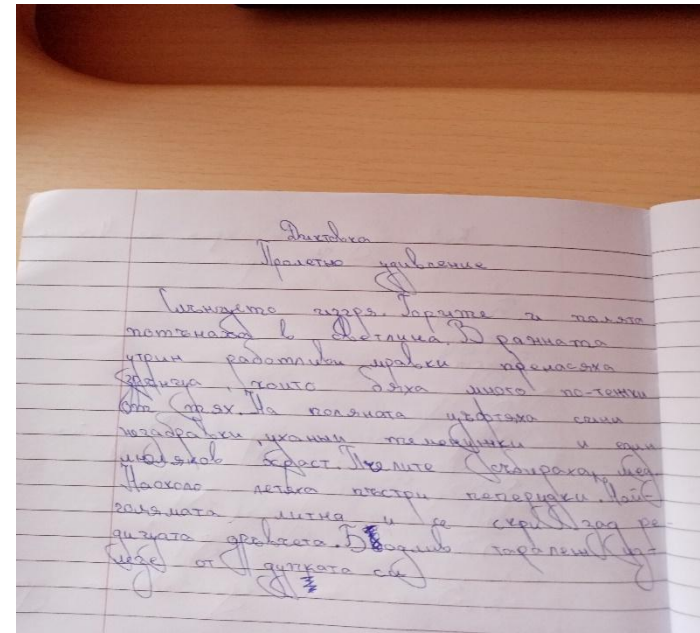 Диктовка
Пролетно удивление
Слънцето изгря. Горите и полята
потънаха в светлина. В ранната
утрин работливи мравки пренасяха
зрънца, които бяха много по-тежки
от тях. На поляната цъфтяха сини
незабравки, уханни теменужки и един
люляков храст. Пчелите събираха мед.
Наоколо летяха пъстри пеперудки. Най-
голямата литна и се скри зад ре-
дицата дървета. Бодлив таралеж из-
лезе от дупката си